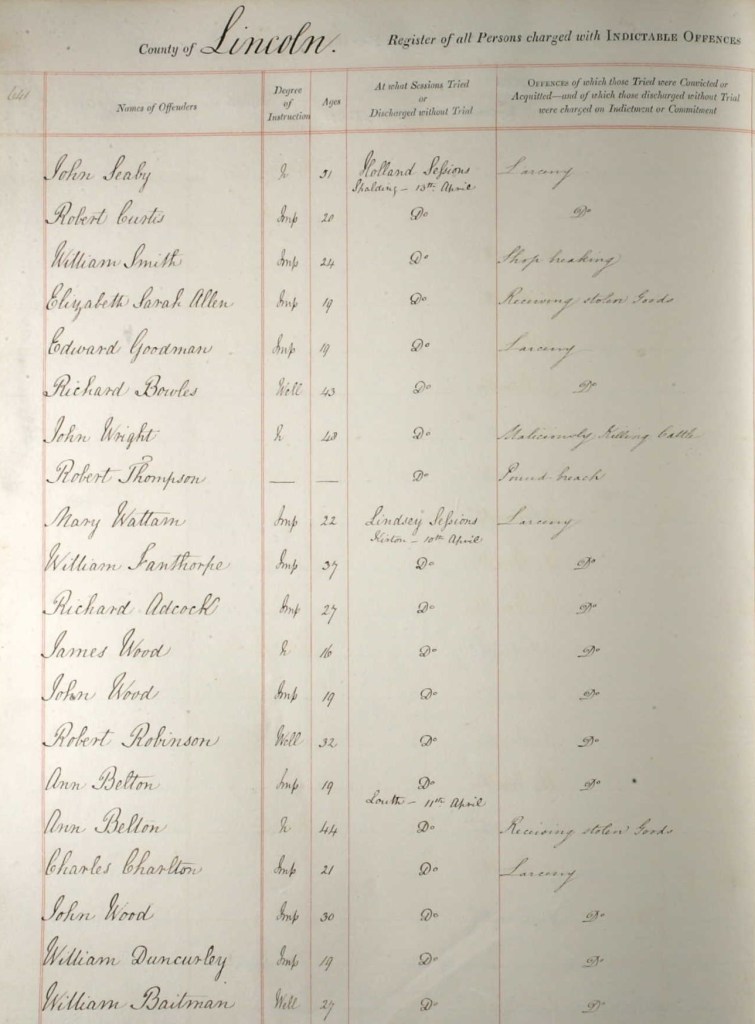 County of Lincoln. Register of all Persons charged with INDICTABLE OFFENCES
Names of Offenders
Degree
of
Instruction
Ages
At what Sessions Tried
or
Discharged without Trial
OFFENCES of which those Tried were Convicted or
Acquitted—and of which those discharged without Trial
were charged on Indictment or Commitment
John Seaby N 31 Holland Sessions Larceny
Spalding - 13th April
Robert Curtis Imp 20 Do Do
William Smith Imp 24 Do Shop breaking
Elizabeth Sarah Allen Imp 19 Do Receiving stolen Goods
Edward Goodman Imp 19 Do Larceny
Richard Bowles Well 43 Do Do
John Wright N 48 Do Maliciously Killing Cattle
Robert Thompson — — Do Pound-breach
Mary Wattam Imp 22 Lindsey Sessions Larceny
Kirton - 10th April
William Fanthorpe Imp 37 Do Do
Richard Adcock Imp 27 Do Do
James Wood N 16 Do Do
John Wood Imp 19 Do Do
Robert Robinson Well 32 Do Do
Ann Belton Imp 19 Do Do
Louth - 11th April
Ann Belton N 44 Do Receiving stolen Goods
Charles Charlton Imp 21 Do Larceny
John Wood Imp 30 Do Do
William Duncurley Imp 19 Do Do
William Baitman Well 27 Do Do